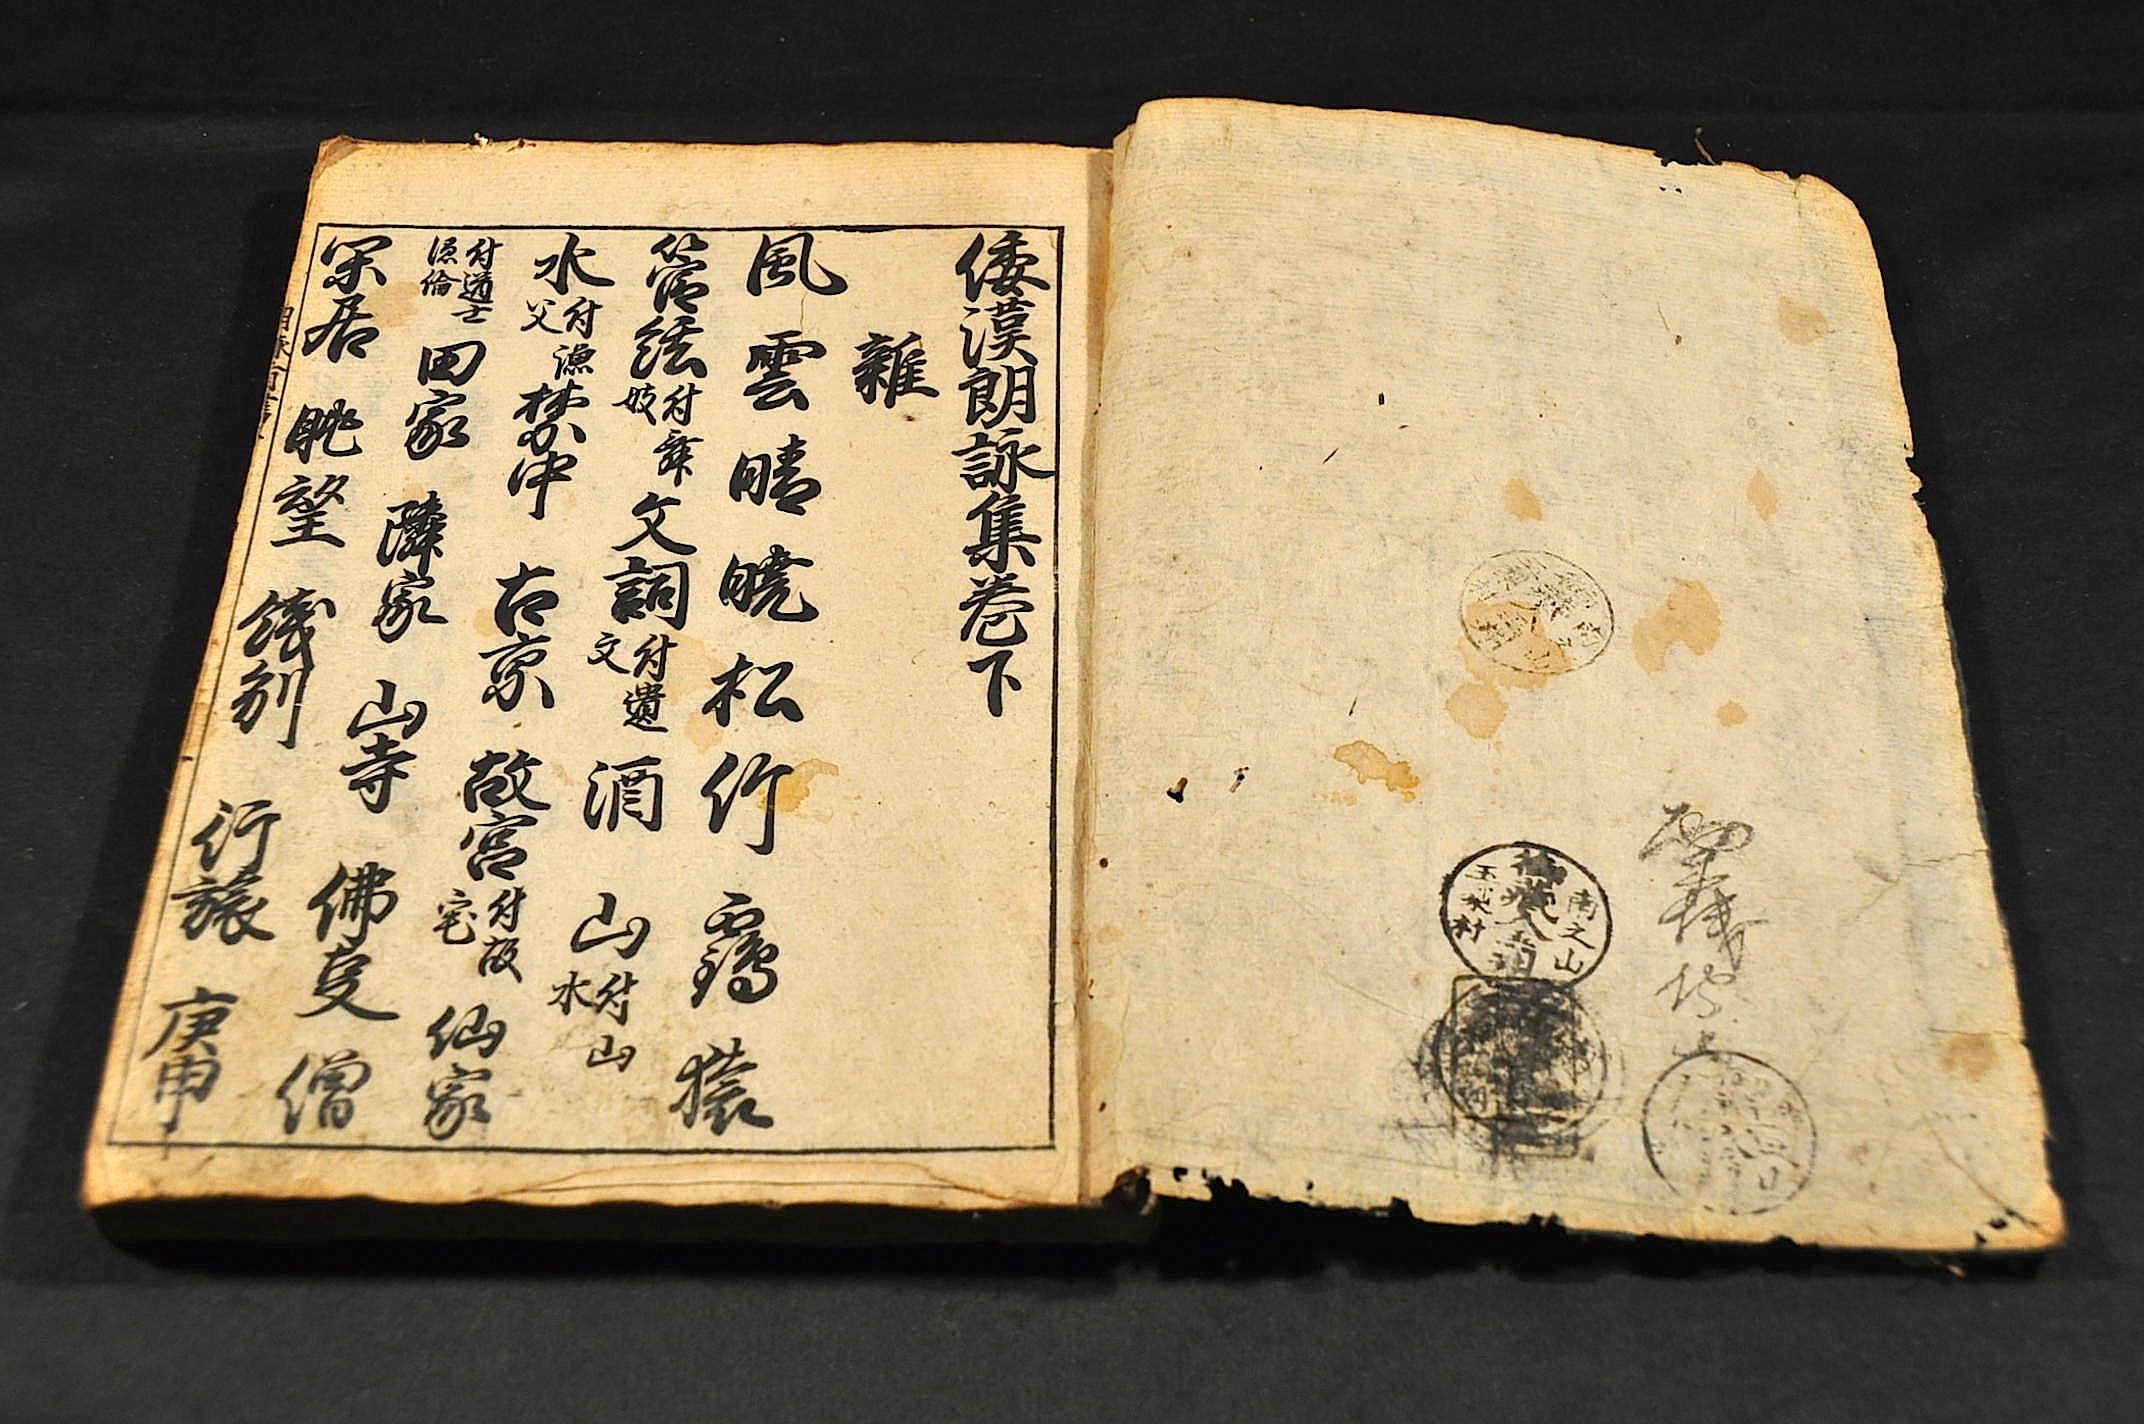 倭漢朗詠集巻下
雜
風 雲 晴 暁 松 竹 鶴 猿
管絃 付舞妓 文詞 付遺文 酒 山 付山水
水 付漁父 禁中 古京 故宮 付故宅 仙家
付道士隠倫 田家 隣家 山寺 佛事 僧
閑居 眺望 餞別 行旅 庚申
南之山
玉水村